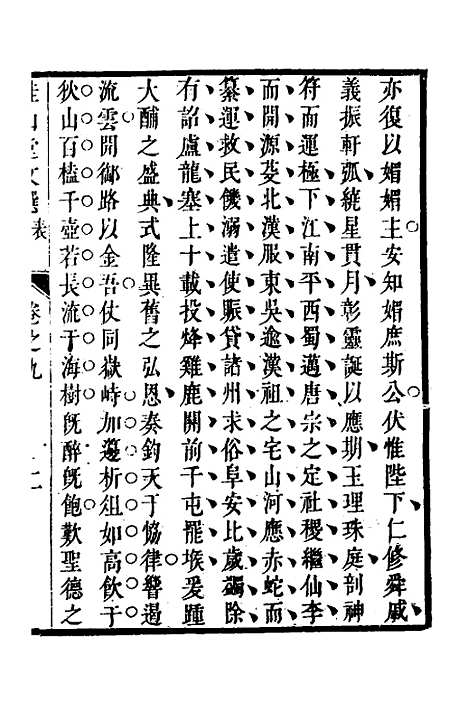 亦復以媚媚主安知媚庶斯公伏惟陛下仁修舜戚
義振軒弧繞星貫月彰靈誕以應期玉理珠庭剖神
符而運極下江南平西蜀邁唐宗之定社稷繼仙李
而開源芟北漢服東吳逾漢祖之宅山河應赤蛇而
纂運救民饑溺遣使賑貸諸州求俗阜安比歲蠲除
有詔盧龍塞上十載投烽雞鹿關前千屯罷堠爰踵
大酺之盛典式隆異舊之弘恩奏鈞天于協律響遏
流雲開御路以金吾仗同嶽峙加籩析俎如高飲于
狄山百榼千壺若長流于海樹既醉既飽歎聖德之
桂山堂文選 表 卷之九